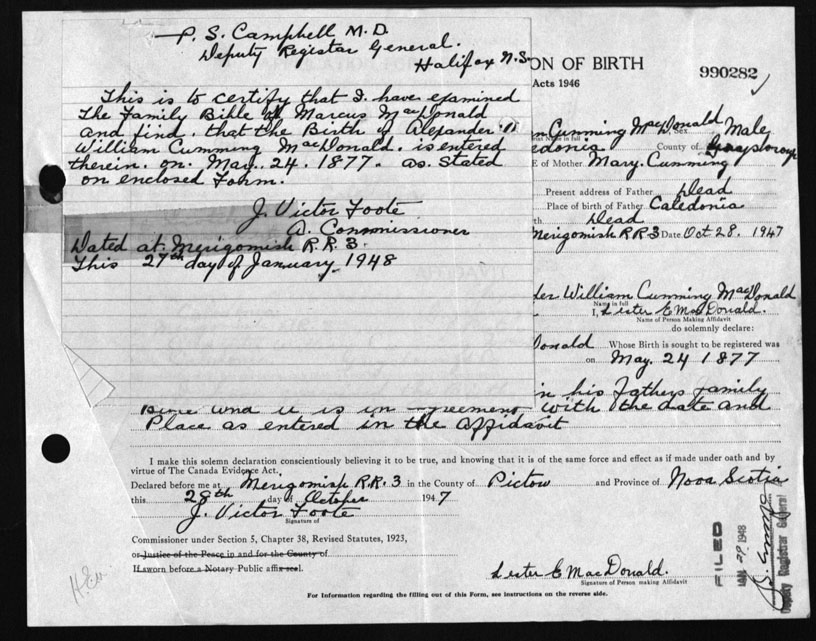 P. S. Campbell M.D.
Deputy Registar General.
Halifax N.S.
This is to certify that I have examined
The Family Bible of Marcus MacDonald
and find that the Birth of Alexander
William Cumming MacDonald. is entered
therein. on. May. 24. 1877. as. Stated
on enclosed Form.
J. Victor Foote
A. Commissioner
Dated at Merigomish R.R. 3.
This 27th day of January 1948
ON OF BIRTH
Acts 1946
990282
Cumming MacDonald Sex Male
edonia County of Guysboroug
E of Mother Mary. Cumming
Present address of Father Dead
Place of birth of Father Caledonia
th Dead
Merigomish RR3 Date Oct 28. 1947
der William Cumming MacDonald
Name in full
I, Lester E MacDonald.
Name of Person Making Affidavit
do solemnly declare:
Donald Whose Birth is sought to be registered was
on May. 24 1877
in his Fathers family
and it is in agreement with the date and
Place as entered in the affidavit
I make this solemn declaration conscientiously believing it to be true, and knowing that it is of the same force and effect as if made under oath and by
virtue of The Canada Evidence Act.
Declared before me at Merigomish R.R. 3 in the County of Pictow and Province of Nova Scotia
this 28th day of October 1947
J. Victor Foote
Signature of
Commissioner under Section 5, Chapter 38, Revised Statutes, 1923,
or Justice of the Peace in and for the County of
If sworn before a Notary Public affix seal.
Lester E MacDonald.
Signature of Person making Affidavit
For Information regarding the filling out of this Form, see instructions on the reverse side.
FILED
29 1948
Deputy Registrar General